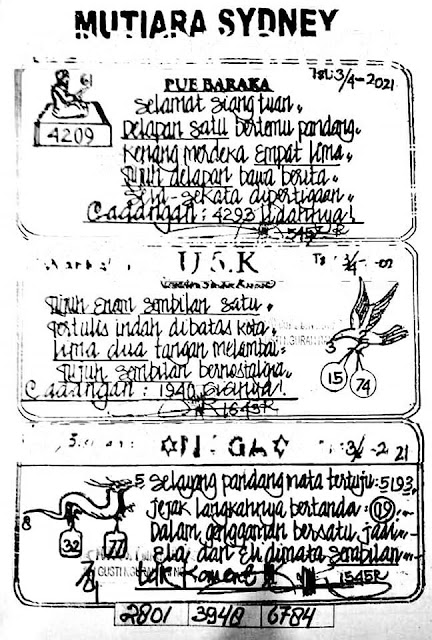 MUTIARA SYDNEY
PUE BARAKA
Tgl: 3/4-2021
4209
Selamat Siang tuan.
Delapan Satu bertemu pandang.
Kenang merdeka Empat lima.
Tujuh delapan bawa berita.
Seia-Sekata dipertigaan.
Cadangan: 4293
1545R
U.S.K
Tujuh Enam Sembilan Satu.
tertulis indah dibatas kota.
Lima dua tangan melambai.
Tujuh Sembilan bernostalgia.
Cadangan: 1940
1545R
3
15 74
3/4-2021
5 Selayang pandang mata tertuju: 5193.
Jejak langkahnya bertanda: 119
Dalam genggaman bersatu jadi
dan Eli dimata Sembilan
8
32 77
1545R
2801 3948 6784